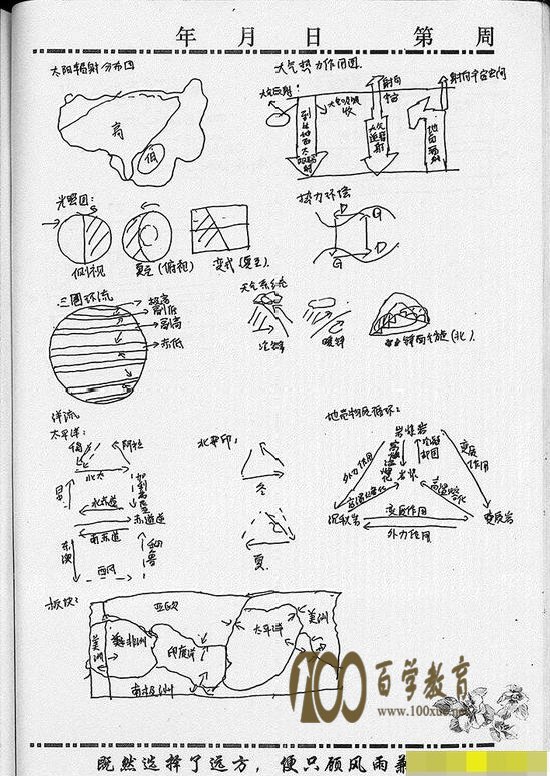 年 月 日 第 周
太阳辐射分布图
大气热力作用图
射向宇宙空间
射向宇宙
大气吸收
到达地面太阳辐射
大气逆辐射
地面辐射
高
低
光照图:
热力环流
侧视
夏至(俯视)
变式(夏至)
D G
G D
三圈环流
极高
副低
副高
赤低
天气系统
冷锋
暖锋
锋面气旋(北)
洋流
太平洋:
北印:
阿拉
北太
加利福尼亚
日
北赤道
赤道逆
南赤道
东澳
秘鲁
西风
冬
夏
地壳物质循环:
岩浆岩
冷却凝固
岩浆
外力作用
变质作用
高温熔化
高温熔化
沉积岩
变质作用
外力作用
变质岩
板块:
亚欧
美洲
非洲
印度洋
太平洋
美洲
南极洲
100百学教育
www.100xue.net
既然选择了远方，便只顾风雨兼